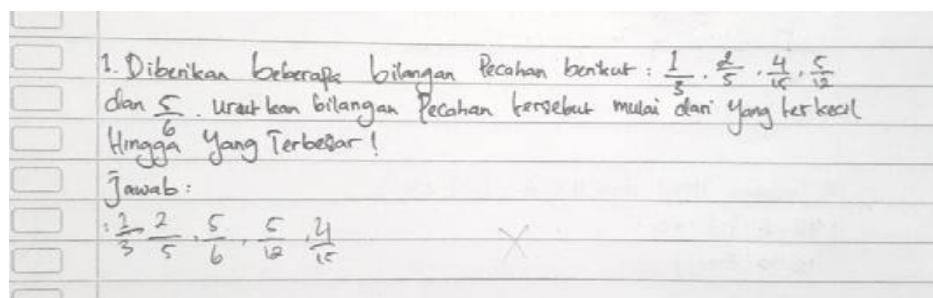 1. Diberikan beberapa bilangan Pecahan berikut : 1/3 . 2/5 . 4/15 . 5/12
dan 5/6 . urutkan bilangan Pecahan tersebut mulai dari yang terkecil
Hingga Yang Terbesar !
Jawab :
: 1/3 . 2/5 . 5/6 . 5/12 . 4/15